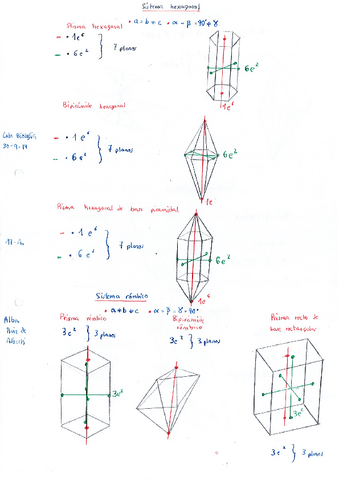 Sistema hexagonal
• a=b≠c • α=β=90º≠γ
Prisma hexagonal
- • 1e⁶
- • 6e²
7 planos
6e²
1e⁶
Bipirámide hexagonal
- • 1e⁶
- • 6e²
7 planos
6e²
1e
Prisma hexagonal de base piramidal
- • 1e⁶
- • 6e²
7 planos
6e²
1e⁶
Sistema rómbico
• a≠b≠c • α=β=γ=90º
Alba
Prisma rómbico
3e² } 3 planos
3e²
Bipirámide rómbica
3e² } 3 planos
Prisma recto de base rectangular
3e²
3e² } 3 planos